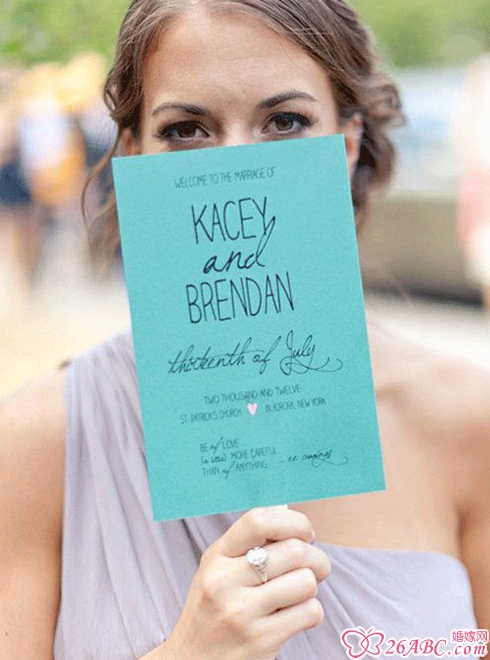 WELCOME TO THE MARRIAGE OF
KACEY
and
BRENDAN
thirteenth of July
TWO THOUSAND AND TWELVE
ST. PATRICK'S CHURCH IN AURORA, NEW YORK
BE of LOVE
(a little) MORE CAREFUL
THAN of ANYTHING ee cummings
婚嫁网
26ABC.com